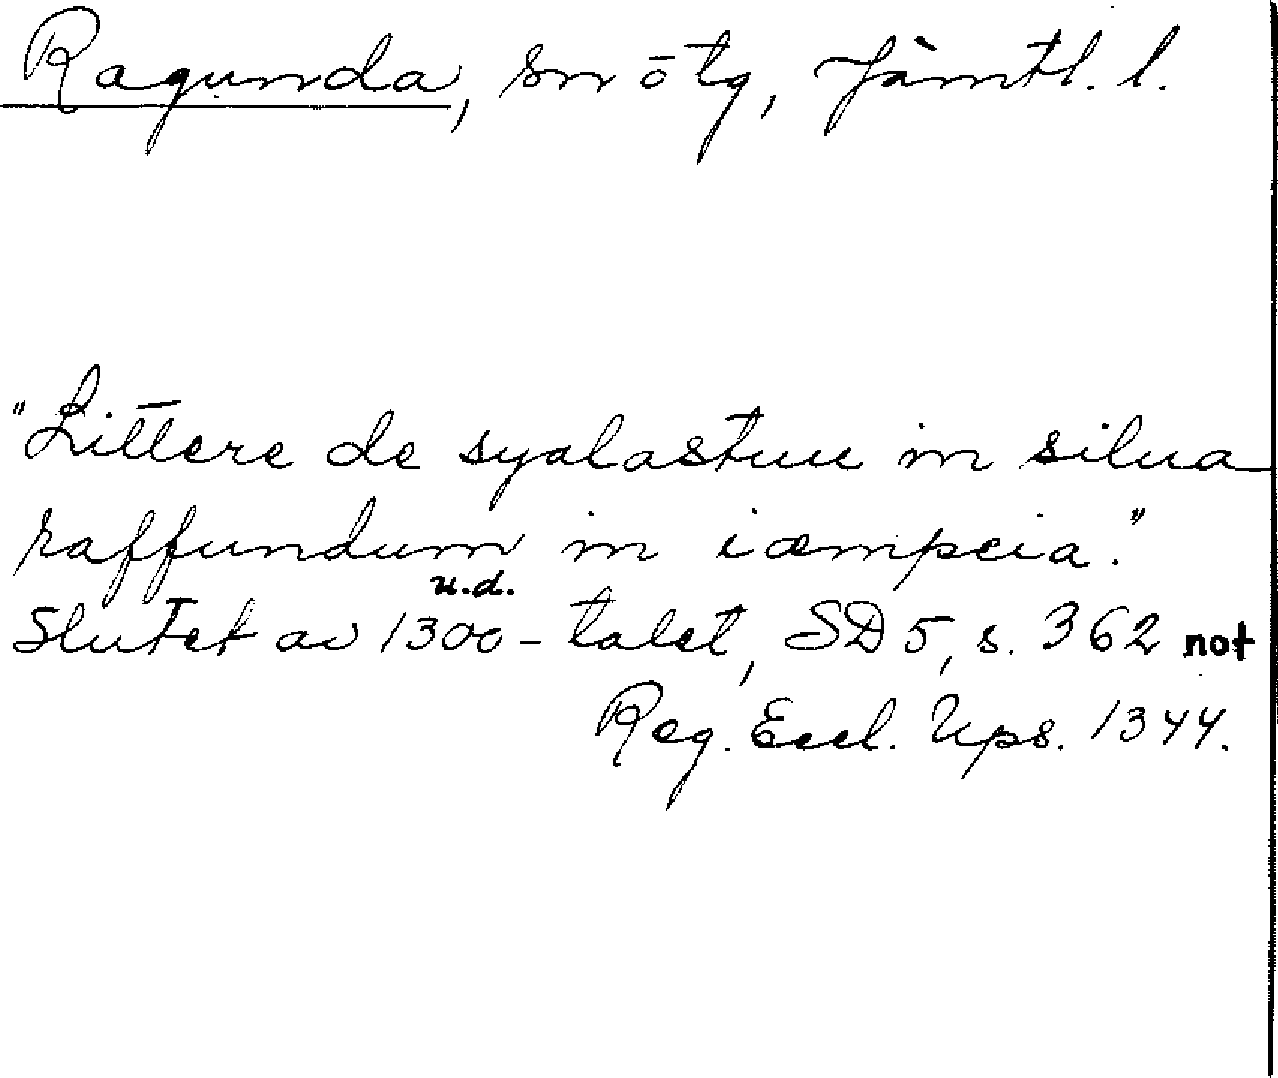 Ragunda, sn ō tg, Jämtl. l.
"Littere de syalastuu in silua
raffundum in iæmpcia."
u.d.
Slutet av 1300-talet, SD 5, s. 362 not
Reg. Eccl. Ups. 1344.